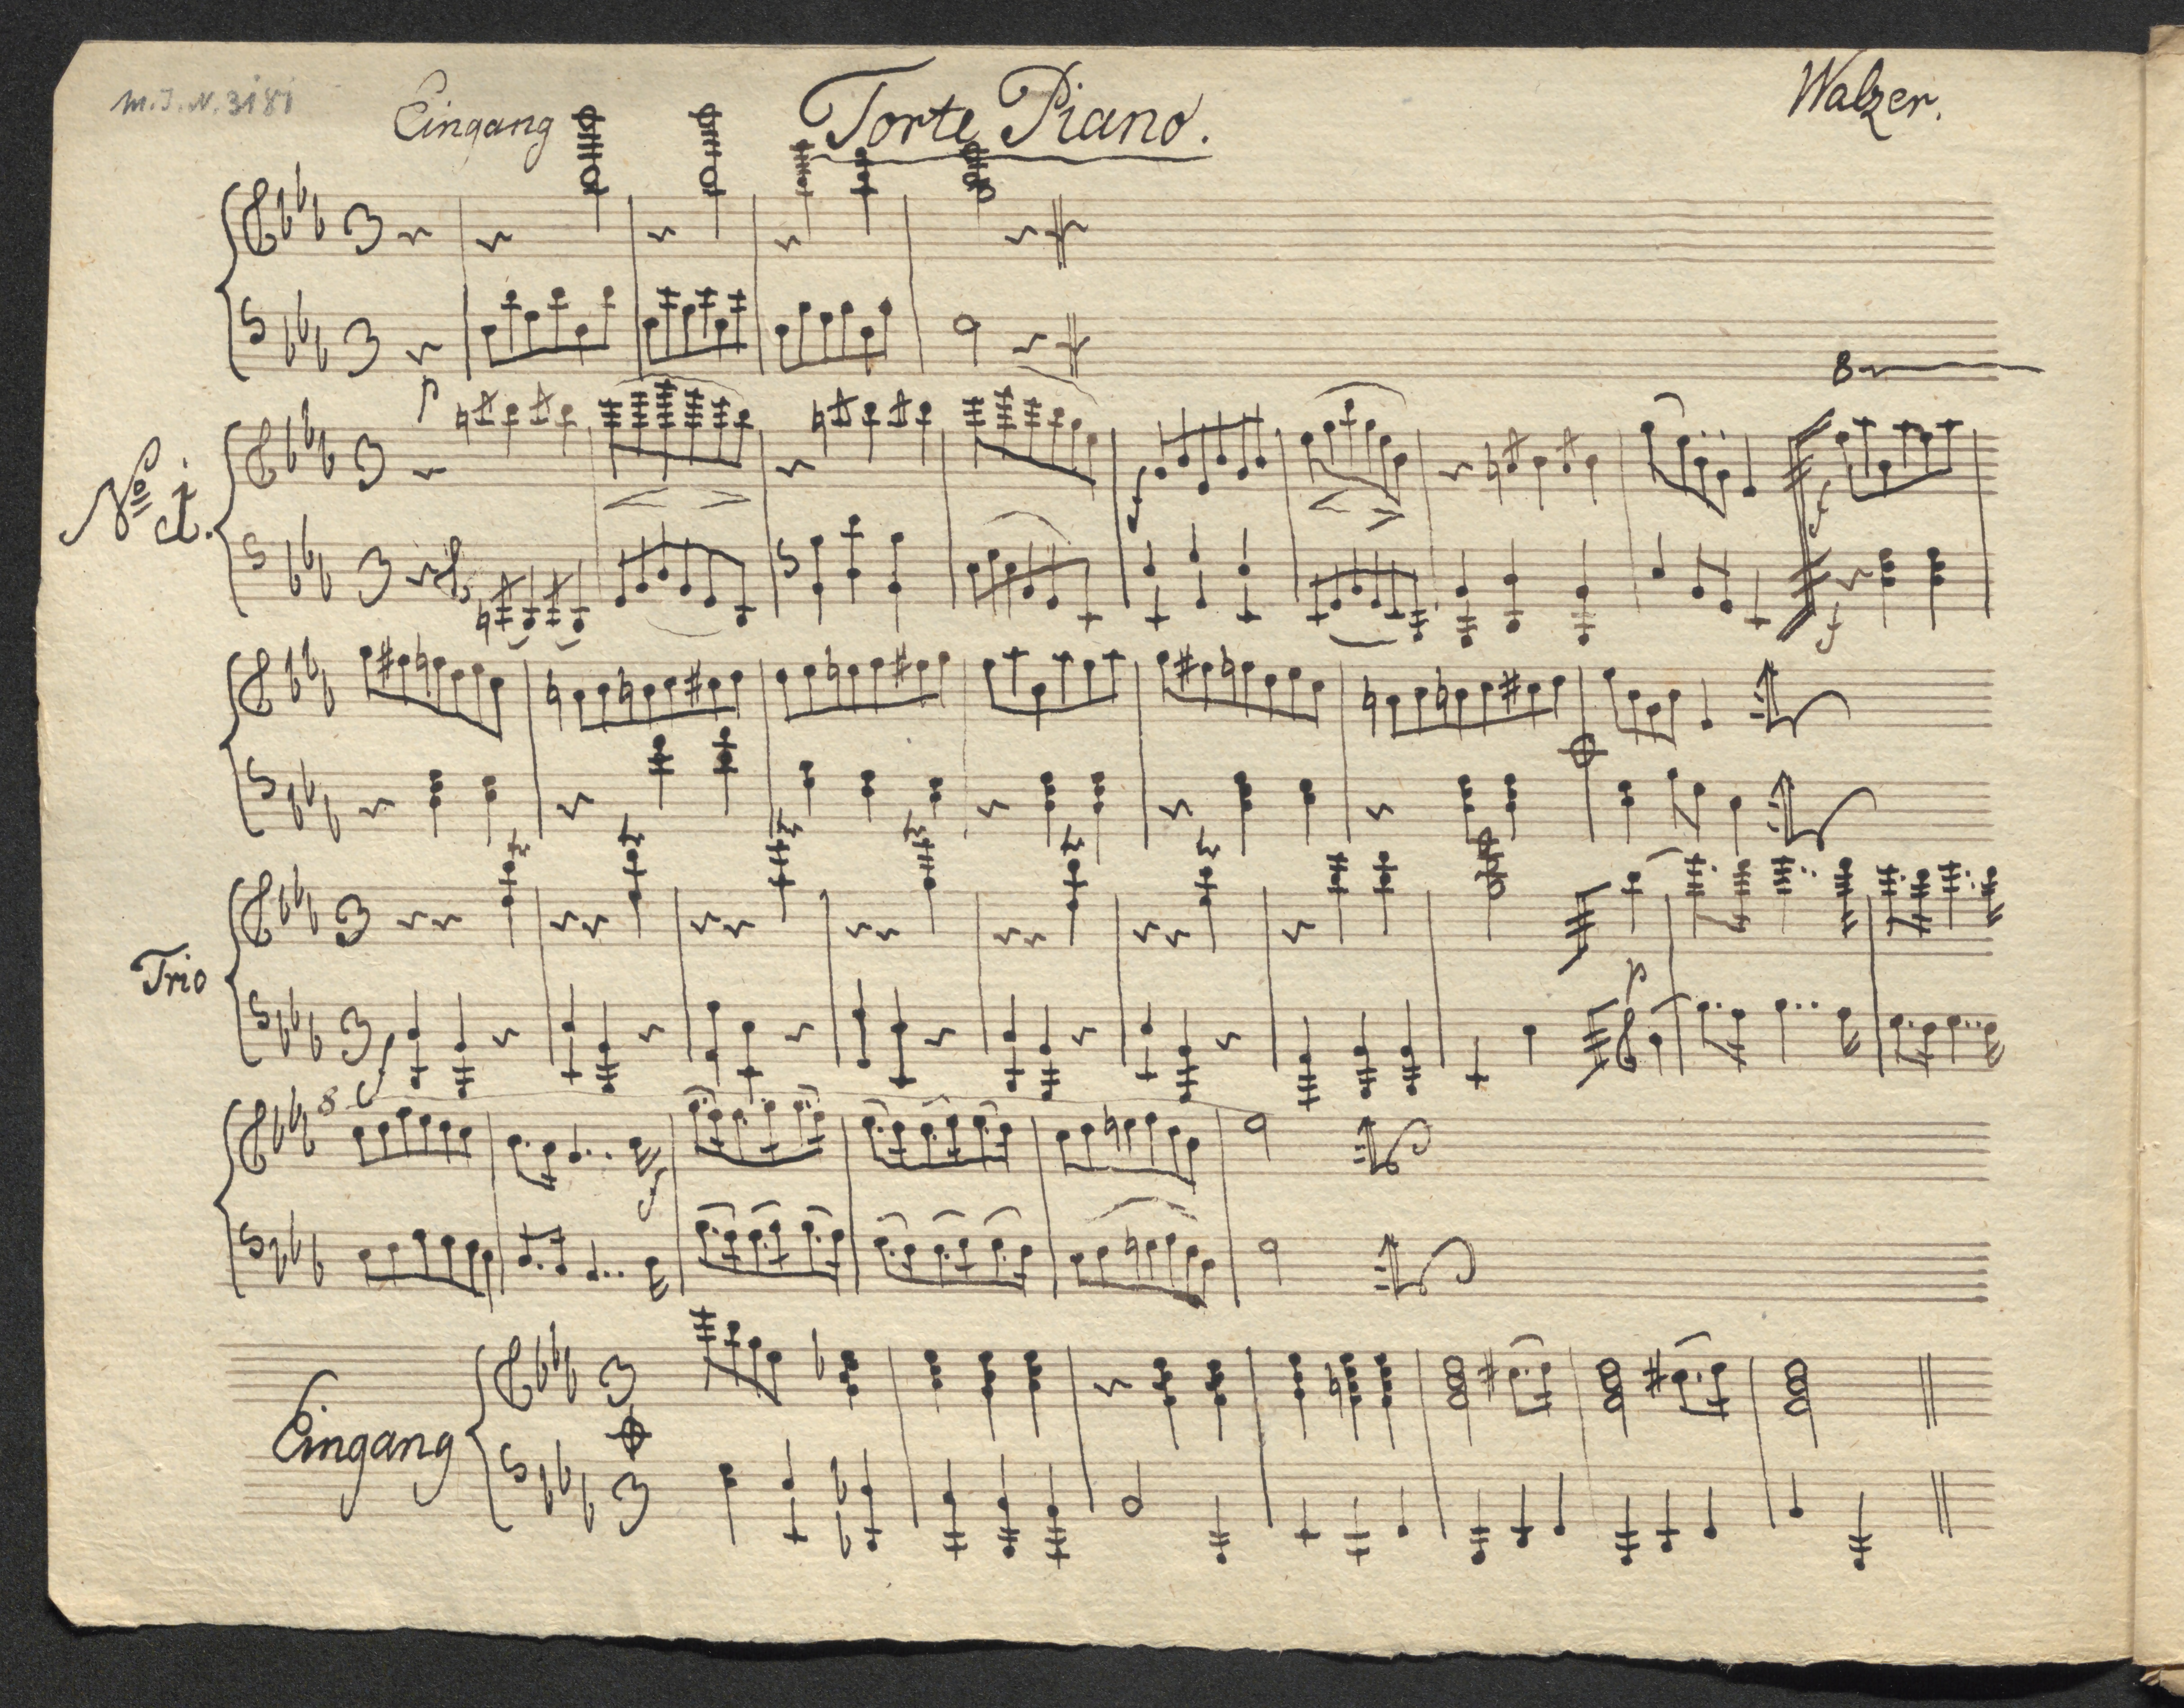 M.J.N. 3181
Eingang
Forte Piano.
Walzer.
p
8
No 1.
f
f
f
f
Trio
f
p
8
f
Eingang